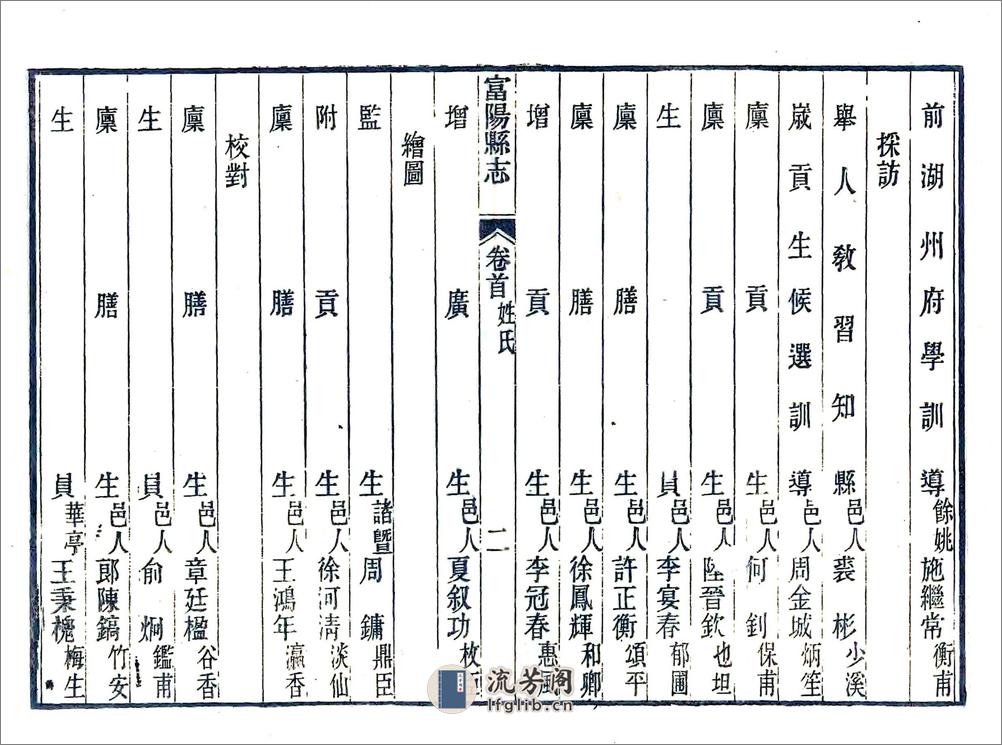 前湖州府學訓導餘姚施繼常衡甫
採訪
舉人教習知縣邑人裘彬少溪
歲貢生候選訓導邑人周金城炳笙
廩貢生何釗保甫
廩貢生邑人陸晉欽也坦
生員李宴春郁圃
廩膳生邑人許正衡頌平
廩膳生邑人徐鳳輝和卿
增貢生邑人李冠春惠風
富陽縣志
卷首
姓氏
二
增廣生邑人夏叙功枚
繪圖
監生諸暨周鏞鼎臣
附貢生邑人徐河清淡仙
廩膳生邑人王鴻年瀛香
校對
廩膳生邑人章廷楹谷香
生員邑人俞炯鑑甫
廩膳生邑人郎陳鎬竹安
生員華亭王秉槐梅生
流芳阁
lfglib.cn